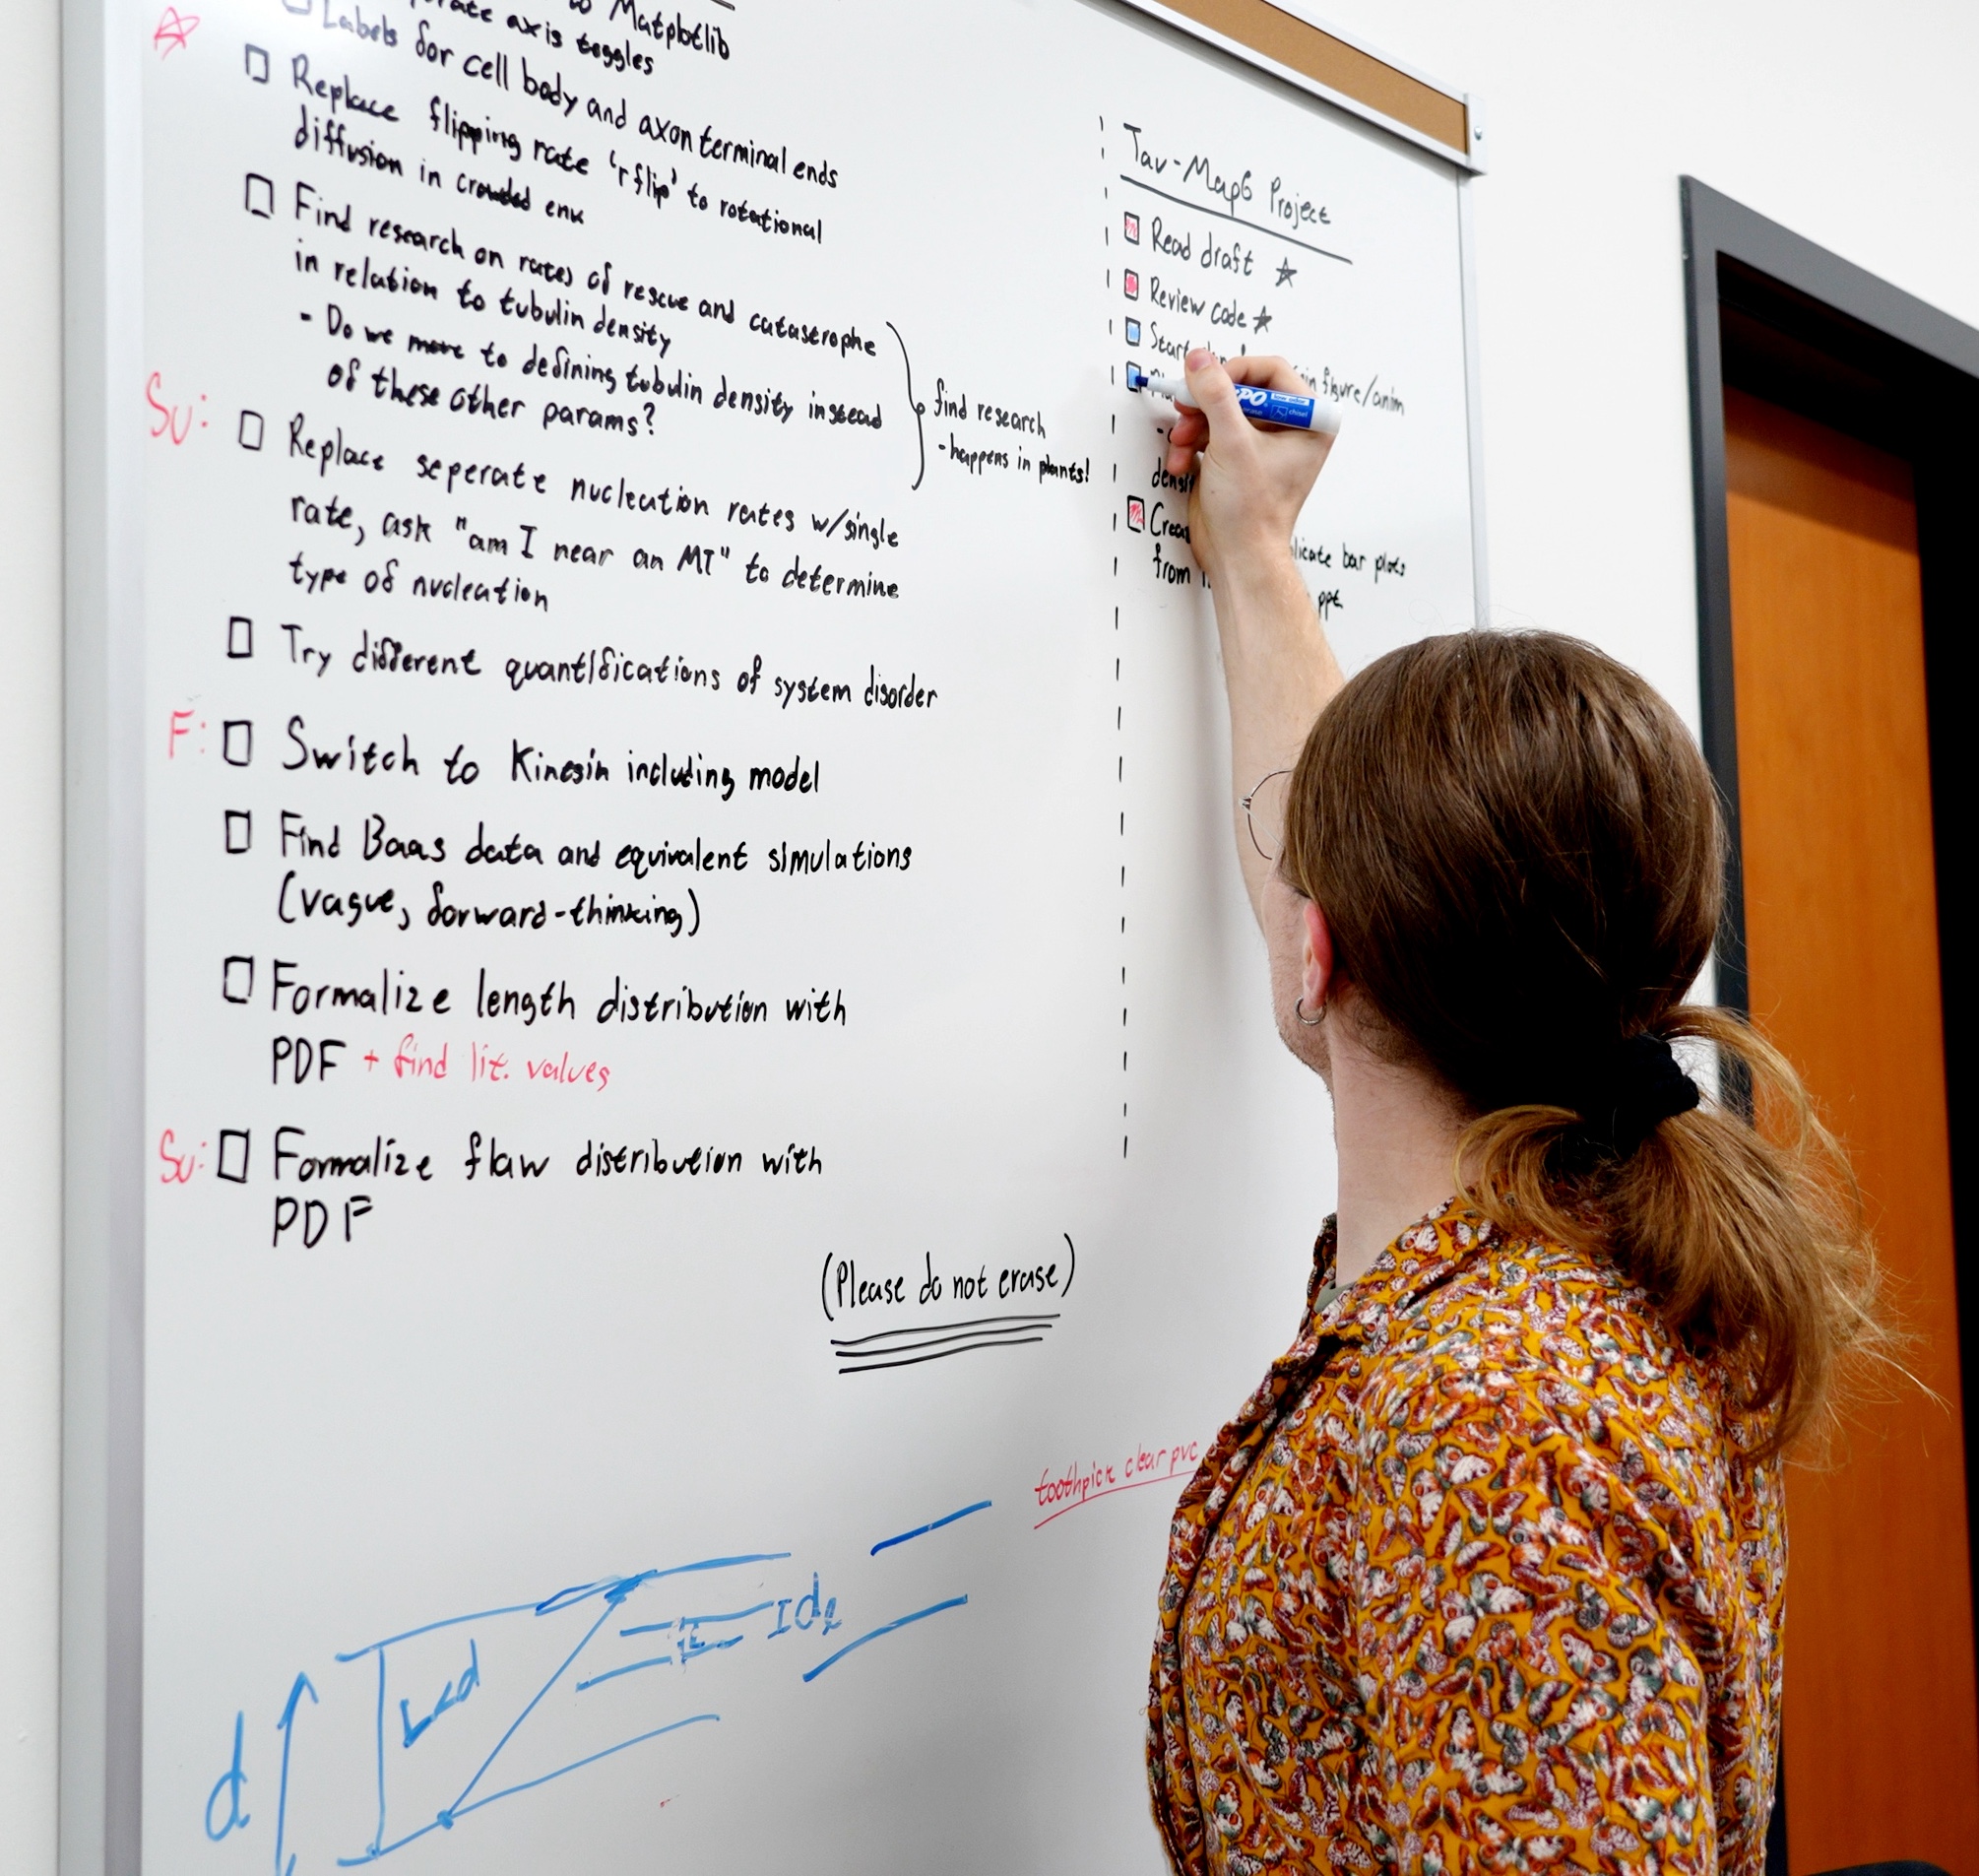 to Matplotlib
axis toggles
Labels for cell body and axon terminal ends
Replace flipping rate 'rflip' to rotational
diffusion in crowded env
Find research on rates of rescue and catastrophe
in relation to tubulin density
- Do we move to defining tubulin density instead
of these other params?
find research
-happens in plants!
Su:
Replace seperate nucleation rates w/single
rate, ask "am I near an MT" to determine
type of nucleation
Try different quantifications of system disorder
F:
Switch to Kinesin including model
Find Baas data and equivalent simulations
(vague, forward-thinking)
Formalize length distribution with
PDF + find lit. values
Su:
Formalize flaw distribution with
PDF
(Please do not erase)
Tau-Map6 Project
Read draft
Review code
Start figure/anim
from ppt
bar plots
chisel
toothpick clear pvc
d
L<d